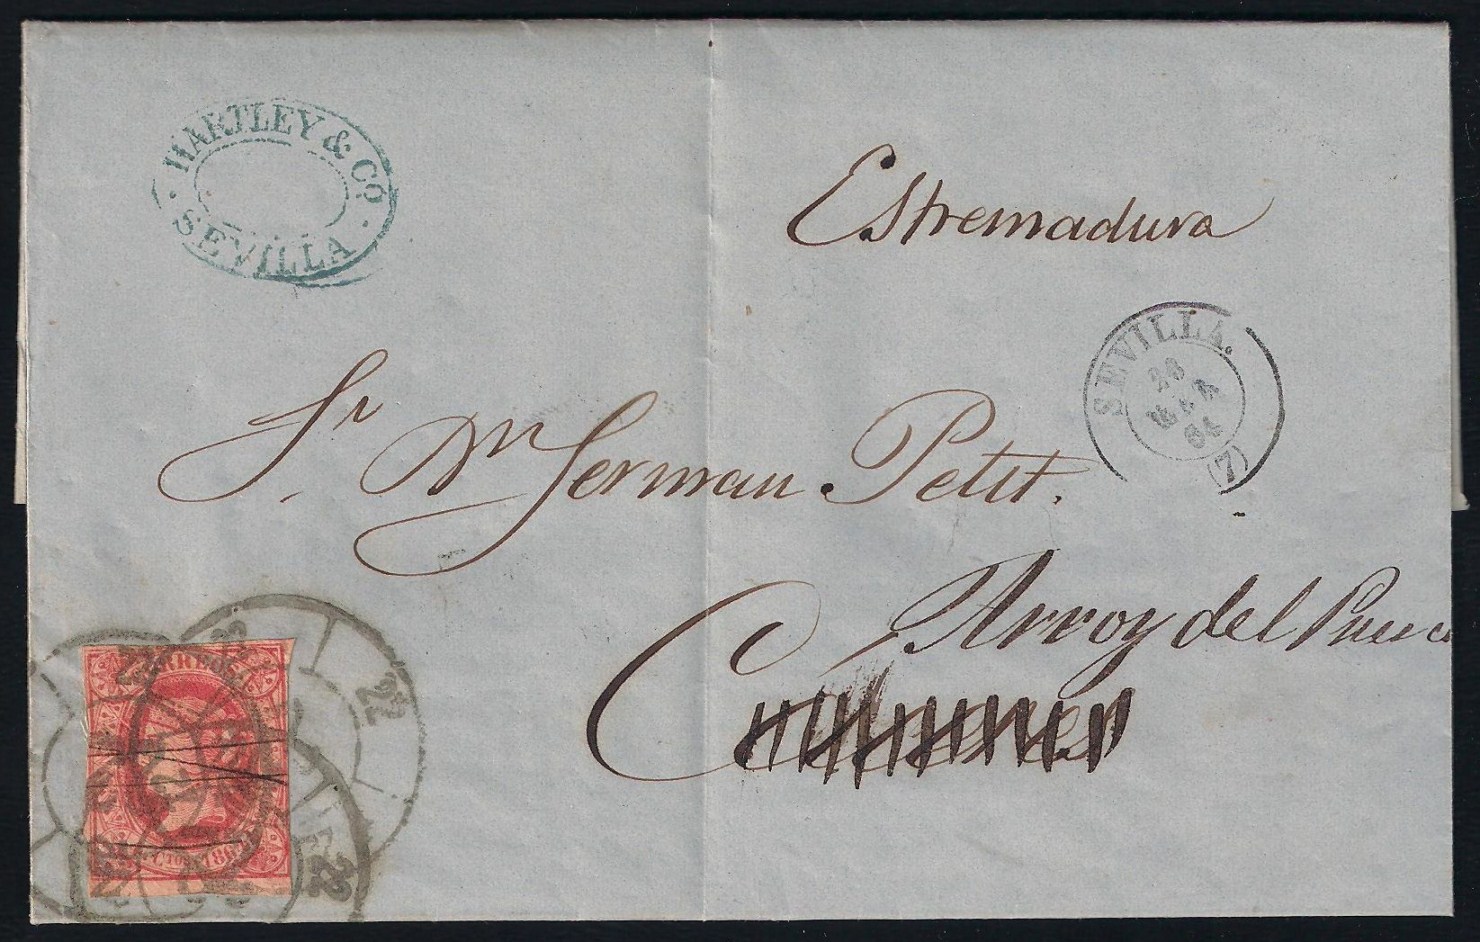 HARTLEY & Co.
SEVILLA
Estremadura
SEVILLA.
28
MAR
64
(7)
Sr Dn German Petit.
Arroy del Puerco
CORREOS
4 Ctos 1864
22
22
22